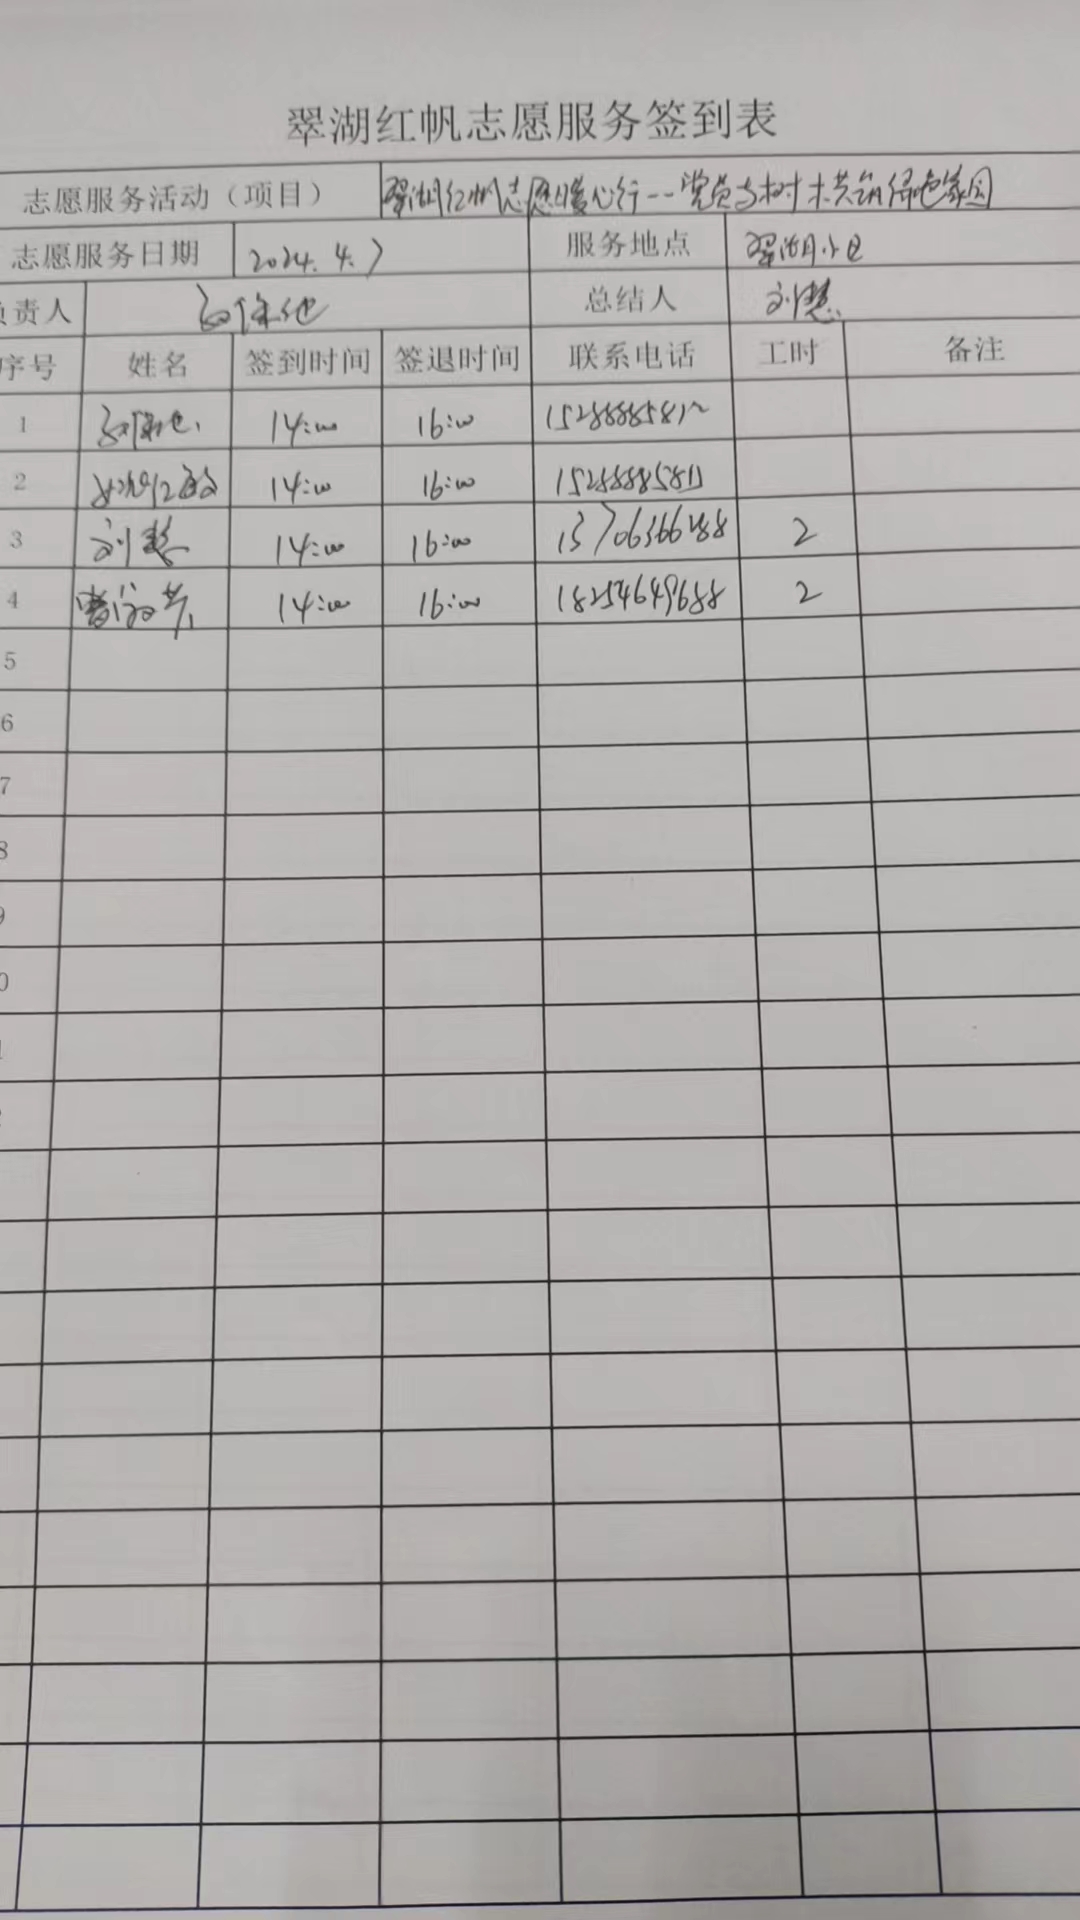 翠湖红帆志愿服务签到表
志愿服务活动（项目） 翠湖红帆志愿暖心行--党员与树木共筑绿色家园
志愿服务日期 2024.4.7 服务地点 翠湖月小区
负责人 总结人 刘慧
序号 姓名 签到时间 签退时间 联系电话 工时 备注
1 14:00 16:00
2 14:00 16:00
3 刘慧 14:00 16:00 2
4 14:00 16:00 18254649688 2
5
6
7
8
9
0
1
2